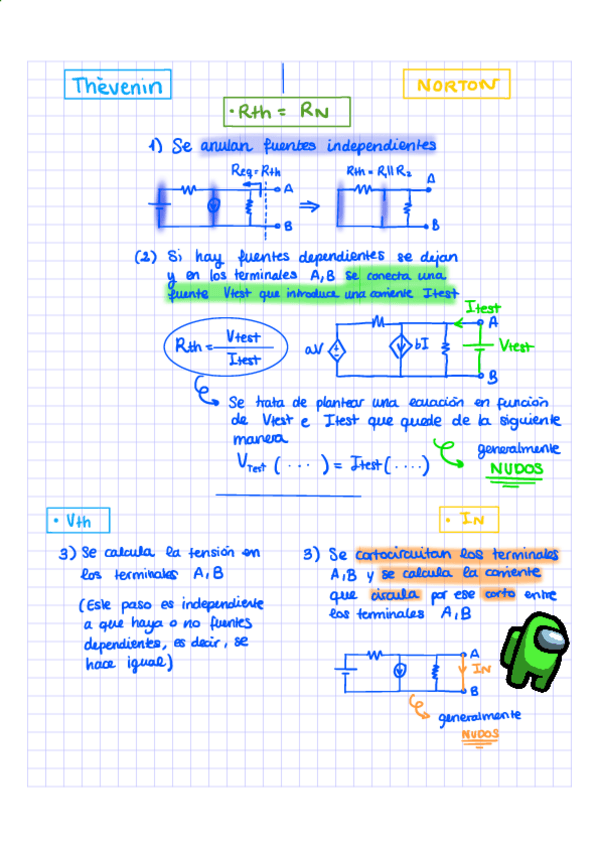 Thèvenin
NORTON
· Rth = RN
1) Se anulan fuentes independientes
Req = Rth
A
B
Rth = R1 || R2
A
B
(2) Si hay fuentes dependientes se dejan
y en los terminales A, B se conecta una
fuente Vtest que introduce una corriente Itest
Rth = Vtest / Itest
Itest
A
aV
bI
Vtest
B
Se trata de plantear una ecuación en función
de Vtest e Itest que quede de la siguiente
manera
VTest (···) = Itest (····)
generalmente
NUDOS
· Vth
3) Se calcula la tensión en
los terminales A, B
(Este paso es independiente
a que haya o no fuentes
dependientes, es decir, se
hace igual)
· IN
3) Se cortocircuitan los terminales
A, B y se calcula la corriente
que circula por ese corto entre
los terminales A, B
A
IN
B
generalmente
NUDOS